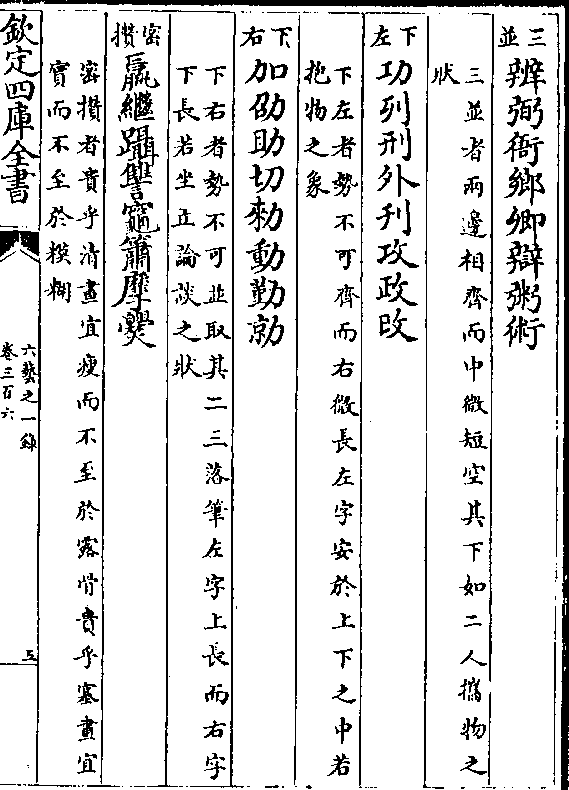 三並 辨弼衙鄉卿辯粥術
三並者兩邊相齊而中微短空其下如二人擕物之
狀
下左 功列刑外刋攻政改
下左者勢不可齊而右微長左字安於上下之中若
抱物之象
下右 加劭助切勑動勤勍
下右者勢不可並取其二三落筆左字上長而右字
下長若坐立論談之狀
密攢 羸繼躡讐竈簫摩爨
密攢者貴乎清畫宜瘦而不至於露骨貴乎塞畫宜
實而不至於模糊
欽定四庫全書
六藝之一錄
卷三百六
五